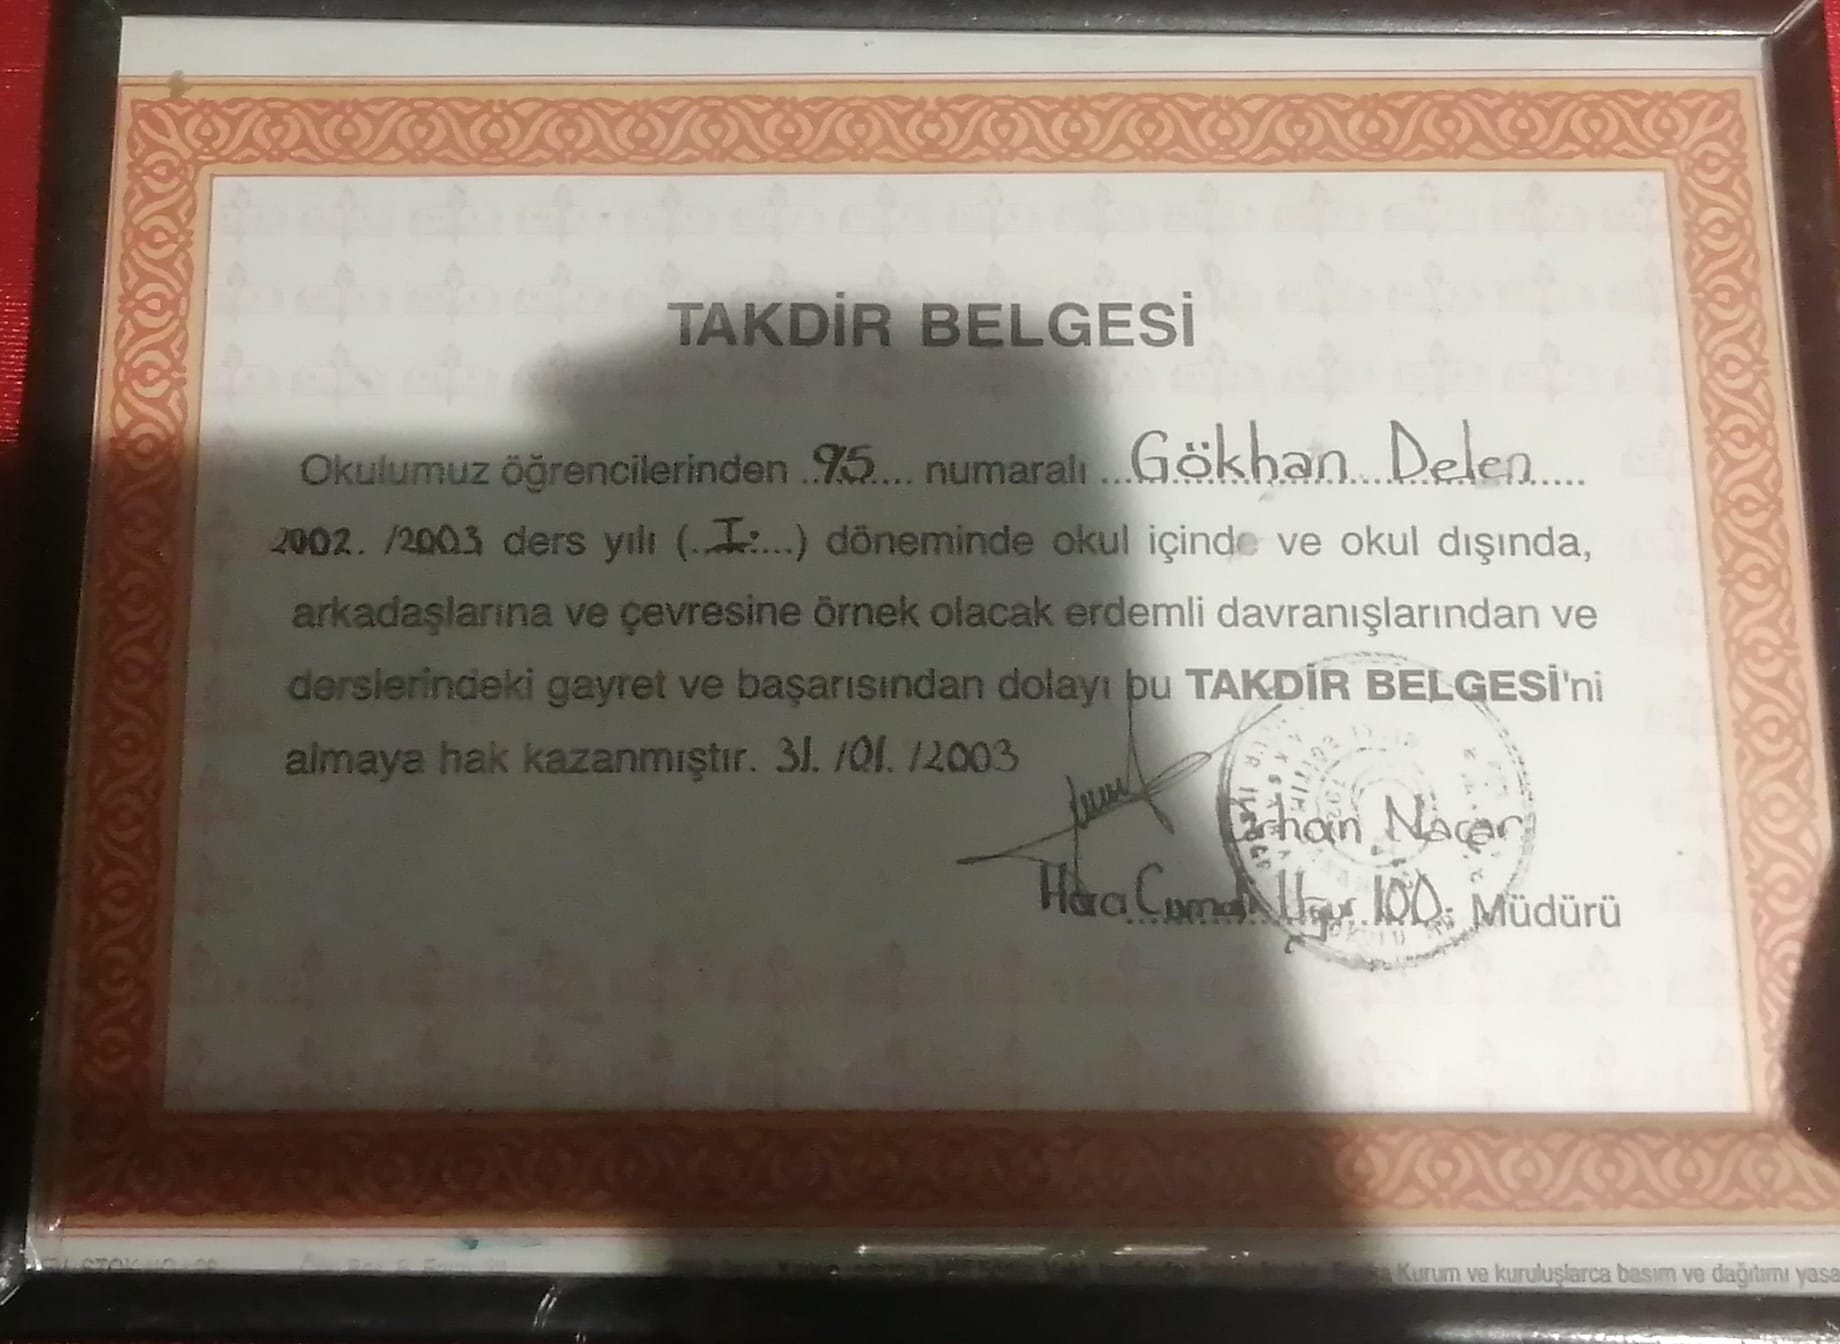 TAKDİR BELGESİ
Okulumuz öğrencilerinden ..95.... numaralı ...Gökhan Delen.....
2002. /2003 ders yılı (..I:....) döneminde okul içinde ve okul dışında,
arkadaşlarına ve çevresine örnek olacak erdemli davranışlarından ve
derslerindeki gayret ve başarısından dolayı bu TAKDİR BELGESİ'ni
almaya hak kazanmıştır. 31. /01. /2003
Orhan Naçar
Uğur İÖO. Müdürü
Kurum ve kuruluşlarca basım ve dağıtımı